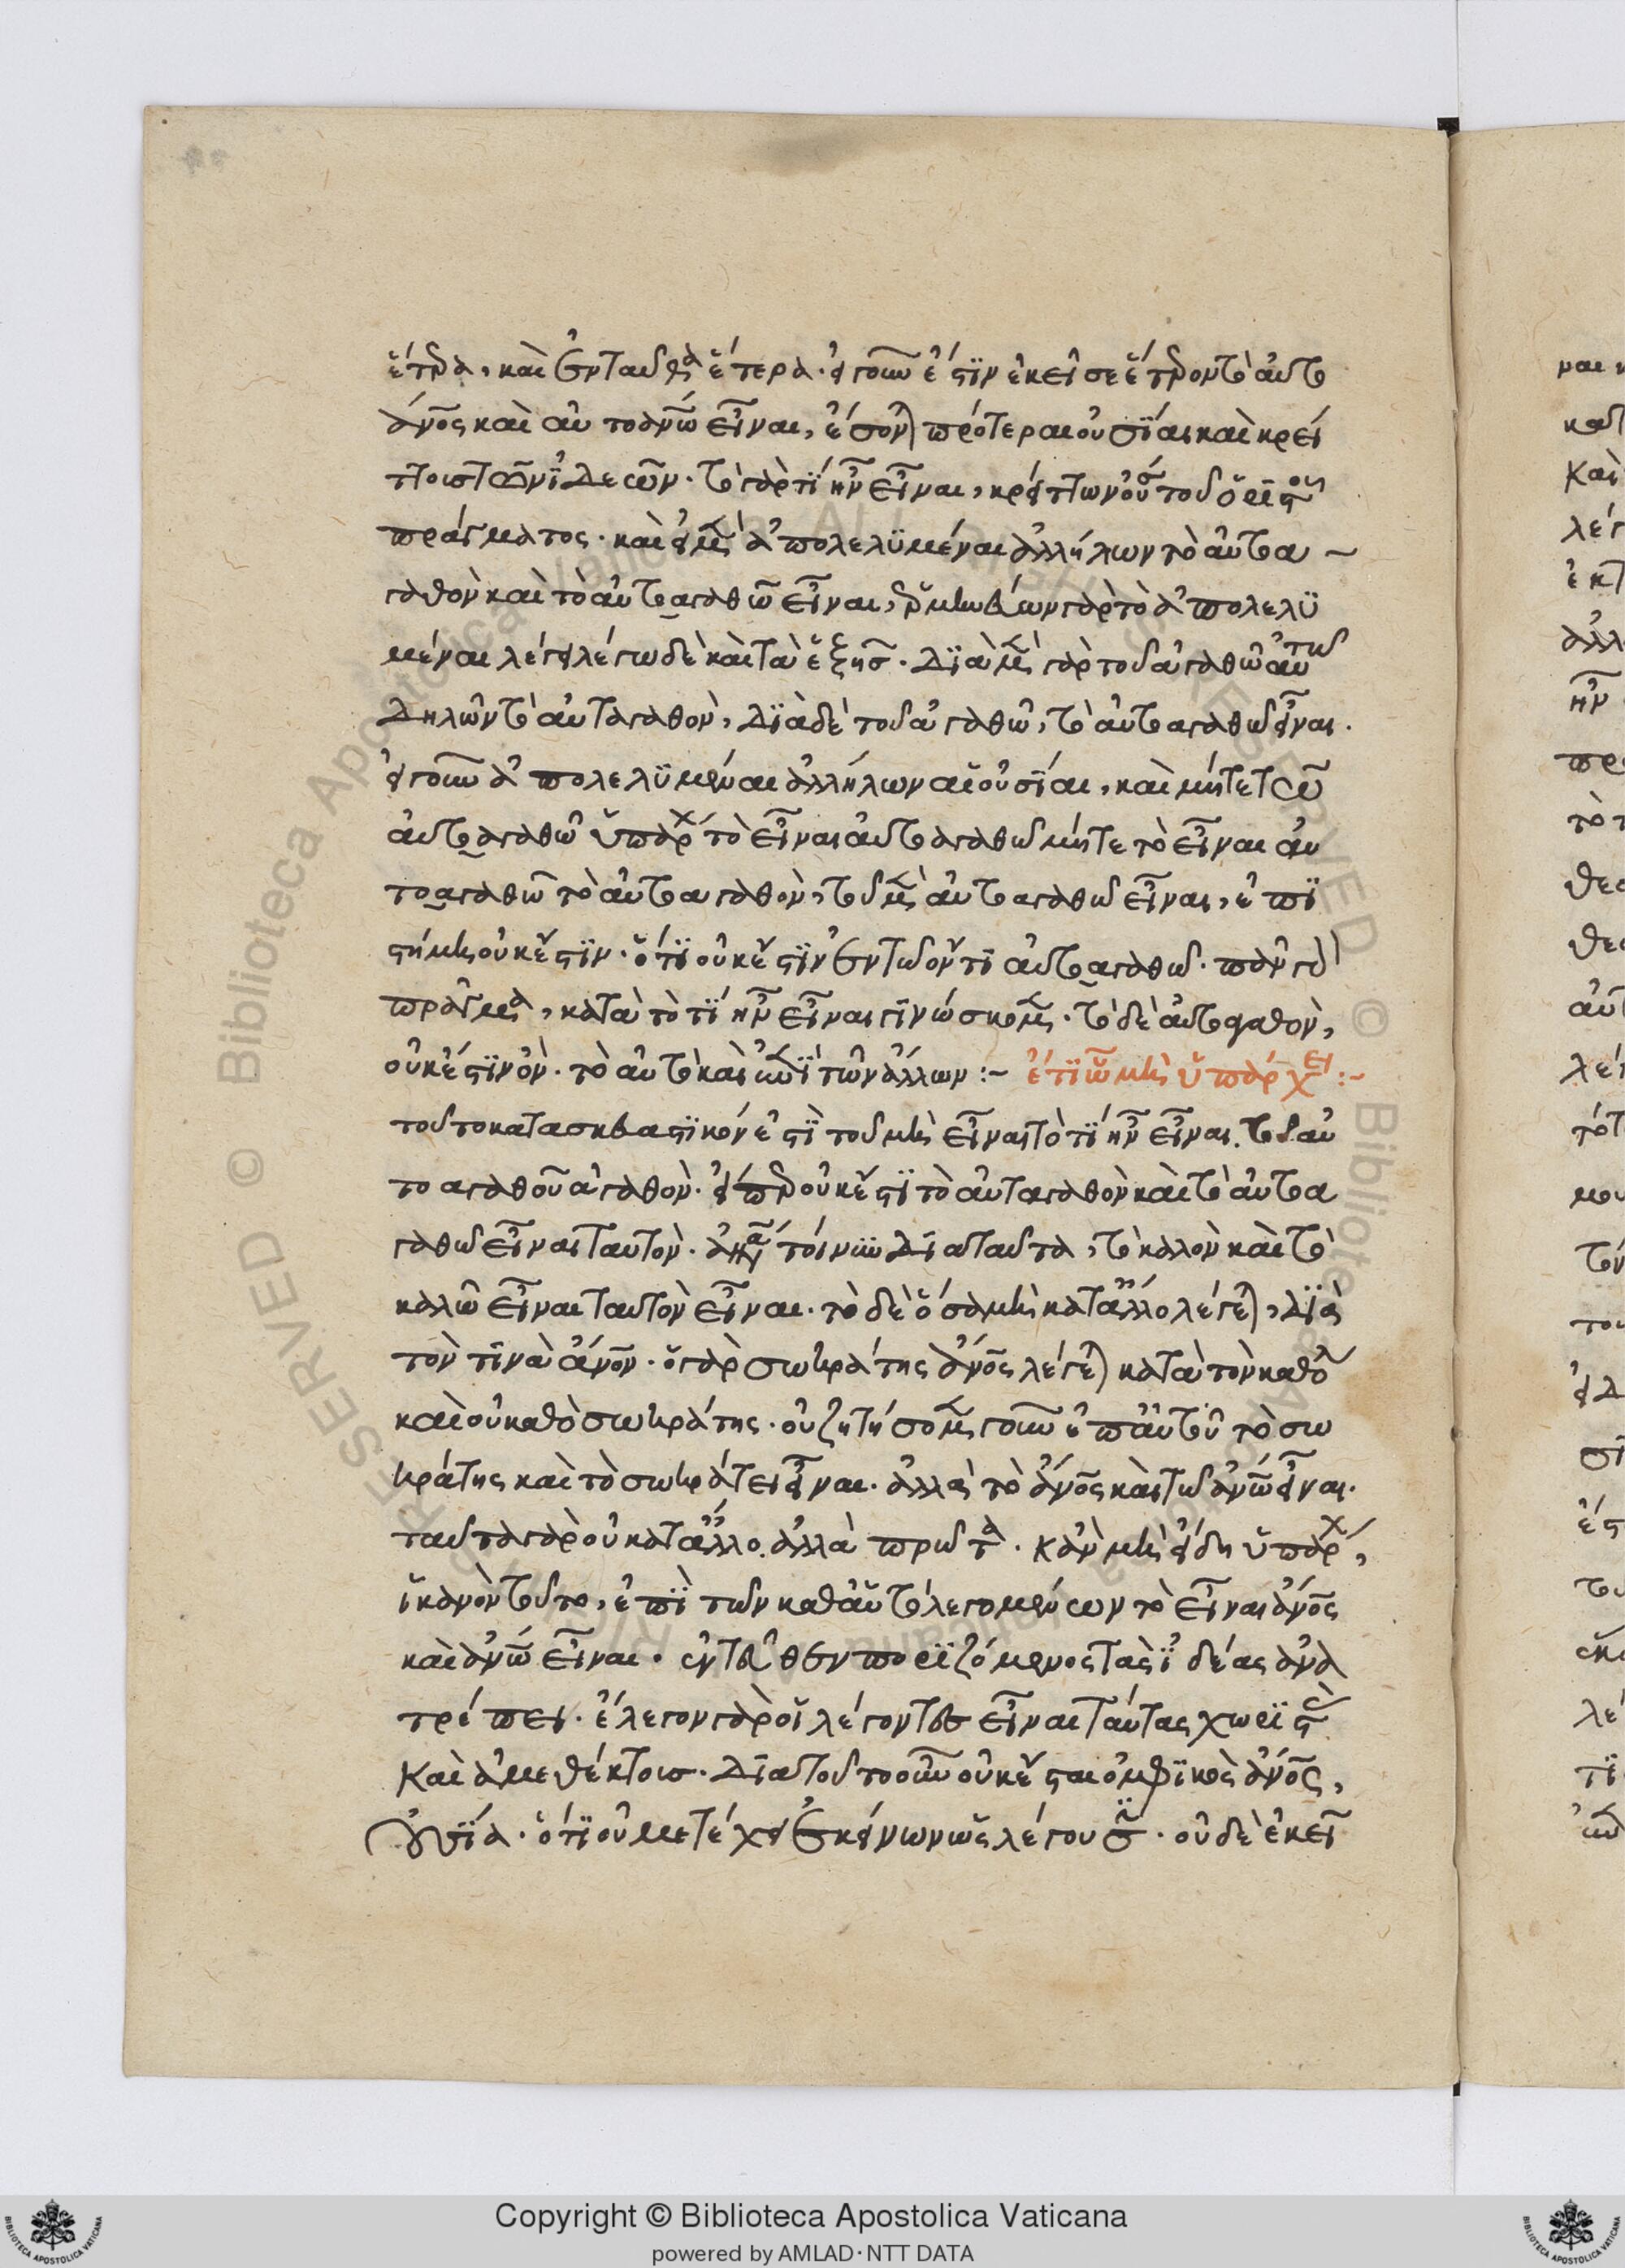 ἕτερα, καὶ ἐνταῦθα ἕτερα. εἰ γοῦν ἐστὶν ἐκεῖσε ἕτερον τὸ αὐτο
ἄνος καὶ αὐτοανω εἶναι, ἔσονται πρότεραι οὐσίαι καὶ κρεί
ττοις τῶν ἰδεῶν. τὸ γὰρ τί ἦν εἶναι, κρεῖττων οὐσ τοῦ ὅ ἐστι
πράγματος. καὶ εἰ μὲν ἀπολελυμέναι ἀλλήλων τὸ αὐτοα
γαθὸν καὶ τὸ αὐτοαγαθῶ εἶναι, ἑρμηνεύων γὰρ τὸ ἀπολελυ
μέναι λέγει λέγω δὲ καὶ τὰ ἑξῆς. διὰ μὲν γὰρ τοῦ ἀγαθῶ αὐτῶ
δηλῶν τὸ αὐταγαθὸν, διὰ δὲ τοῦ ἀγαθῶ, τὸ αὐτοαγαθῶ εἶναι.
εἰ γοῦν ἀπολελυμέναι ἀλλήλων αἱ οὐσίαι, καὶ μήτε τῶ
αὐτοαγαθῶ ὑπάρχ τὸ εἶναι αὐτοαγαθῶ μήτε τὸ εἶναι αὐ
τοαγαθῶ τὸ αὐτοαγαθὸν, τοῦ μὲν αὐτοαγαθῶ εἶναι, ἐπι
στήμη οὐκ ἔστιν. ὅτι οὐκ ἔστιν ἐν τῶ ὄντι αὐτοαγαθῶ. πᾶν γὰρ
πρᾶγμα, κατὰ τὸ τί ἦν εἶναι γινώσκομεν. τὸ δὲ αὐτοαγαθὸν,
οὐκ ἔστιν ὄν. τὸ αὐτὸ καὶ ἐπὶ τῶν ἄλλων :~ ἔτι ὧ μὴ ὑπάρχει :~
τοῦτο κατασκευαστικόν ἐστι τοῦ μὴ εἶναι τὸ τί ἦν εἶναι. τοῦ αὐ
τοαγαθοῦ ἀγαθὸν. εἴπερ οὐκ ἔστι τὸ αὐταγαθὸν καὶ τὸ αὐτοα
γαθῶ εἶναι ταυτὸν. ἀνάγκη τοίνυν διὰ ταῦτα, τὸ καλὸν καὶ τὸ
καλῶ εἶναι ταυτὸν εἶναι. τὸ δὲ ὅσα μὴ κατ' ἄλλο λέγεται, διὰ
τὸν τινὰ ἄνον. ὁ γὰρ σωκράτης ἄνος λέγεται κατὰ τὸν καθόλ
καὶ οὐ καθὸ σωκράτης. οὐ ζητήσομεν γοῦν ἐπ' αὐτοῦ τὸ σω
κράτης καὶ τὸ σωκράτει εἶναι. ἀλλὰ τὸ ἄνος καὶ τῶ ἀνω εἶναι.
ταῦτα γὰρ οὐ κατ' ἄλλο ἀλλὰ πρῶτα. κἂν μὴ εἴδη ὑπάρχ,
ἱκανὸν τοῦτο, ἐπὶ τῶν καθ' αὑτὸ λεγομένων τὸ εἶναι ἄνος
καὶ ἀνω εἶναι. ἐντεῦθεν ποριζόμενος τὰς ἰδέας ἀνα
τρέπει. ἔλεγον γὰρ οἱ λέγοντες εἶναι ταύτας χωριστὰς
καὶ ἀμεθέκτοις. διὰ τοῦτο οὖν οὐκ ἔσται ὁ μερικὸς ἄνος,
οὐσία. ὅτι οὐ μετέχει ἐκείνων ὡς λέγουσιν. οὐδὲ ἐκεῖ